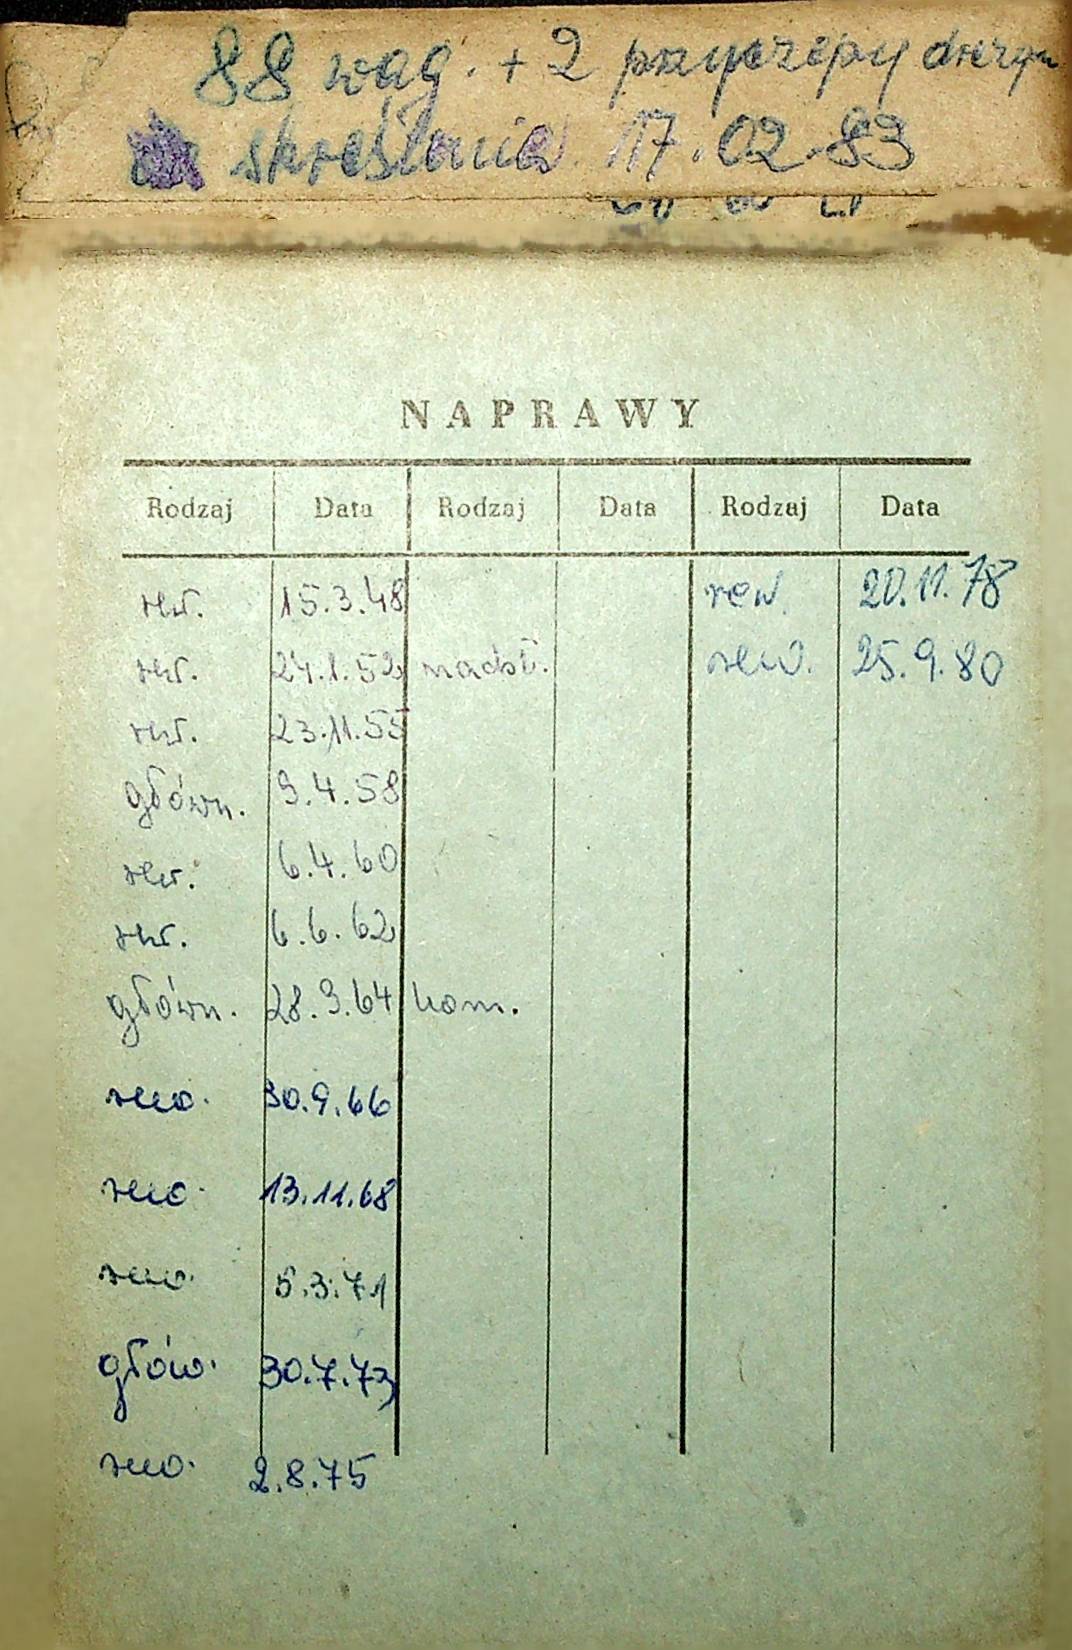 88 wag. + 2 przyczepy drezyn
skreślenie 17.02.83
NAPRAWY
Rodzaj Data Rodzaj Data Rodzaj Data
rew. 15.3.48 rew. 20.11.78
rew. 24.1.52 nadzw. rew. 25.9.80
rew. 23.11.55
główn. 9.4.58
rew. 6.4.60
rew. 6.6.62
główn. 28.9.64 kom.
rew. 30.9.66
rew. 13.11.68
rew. 5.3.71
głów. 30.7.73
rew. 2.8.75